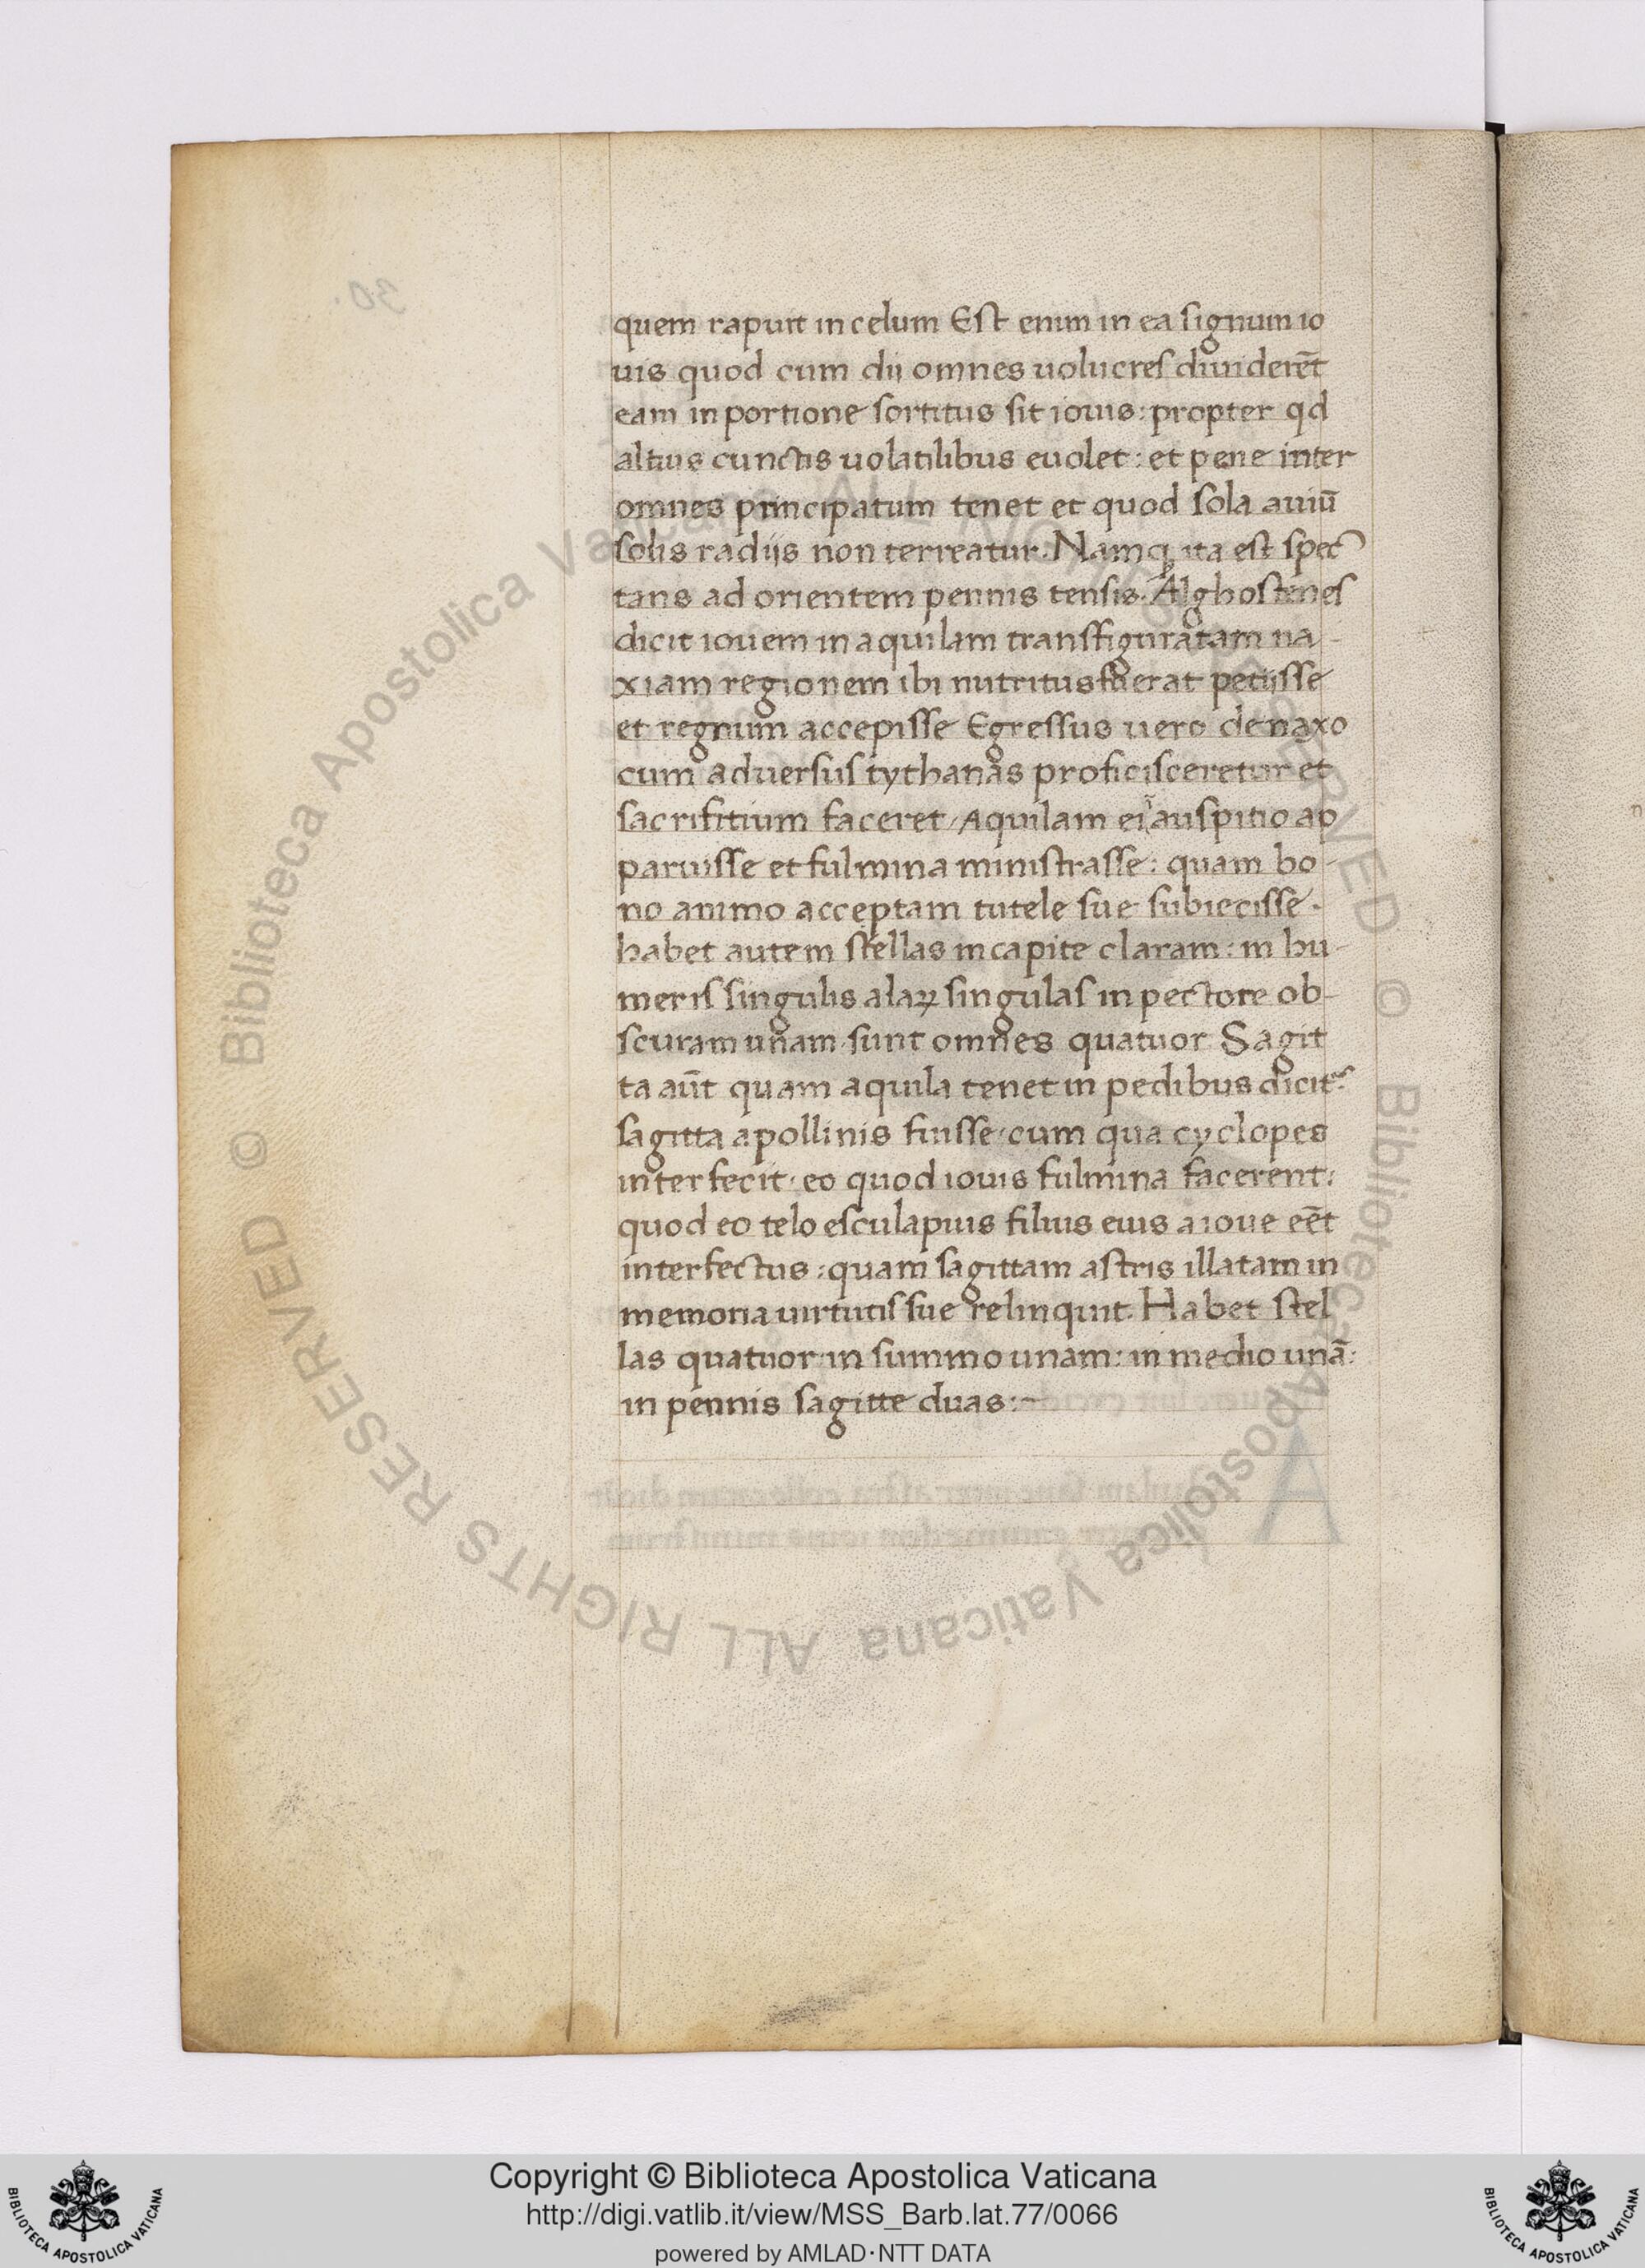 quem rapuit in celum Est enim in ea signum io
uis quod cum dij omnes uolucres diuiderēt
eam in portione sortitus sit iouis: propter qd
altius cunctis uolatilibus euolet: et pene inter
omnes principatum tenet et quod sola auiū
solis radijs non terreatur. Namq ita est spec
tans ad orientem pennis tensis. Alghostenes
dicit iouem in aquilam transfiguratam na-
xiam regionem ibi nutritus fuerat petijsse
et regnum accepisse Egressus uero de naxo
cum aduersus tythanas proficisceretur et
sacrifitium faceret, Aquilam ei auspitio ap
paruisse et fulmina ministrasse: quam bo-
no animo acceptam tutele sue subiecisse.
habet autem stellas in capite claram: in hu-
meris singulis alaꝝ singulas in pectore ob-
scuram unam sunt omnes quatuor Sagit
ta aūt quam aquila tenet in pedibus dicit᷑
sagitta apollinis fuisse· cum qua cyclopes
interfecit· eo quod iouis fulmina facerent:
quod eo telo esculapius filius eius a ioue eēt
interfectus: quam sagittam astris illatam in
memoria uirtutis sue relinquit. Habet stel
las quatuor· in summo unam: in medio unā:
in pennis sagitte duas:~
© Biblioteca Apostolica Vaticana ALL RIGHTS RESERVED © Biblioteca Apostolica Vaticana ALL RIGHTS RESERVED
Copyright © Biblioteca Apostolica Vaticana
http://digi.vatlib.it/view/MSS_Barb.lat.77/0066
powered by AMLAD·NTT DATA
BIBLIOTECA APOSTOLICA VATICANA
BIBLIOTECA APOSTOLICA VATICANA